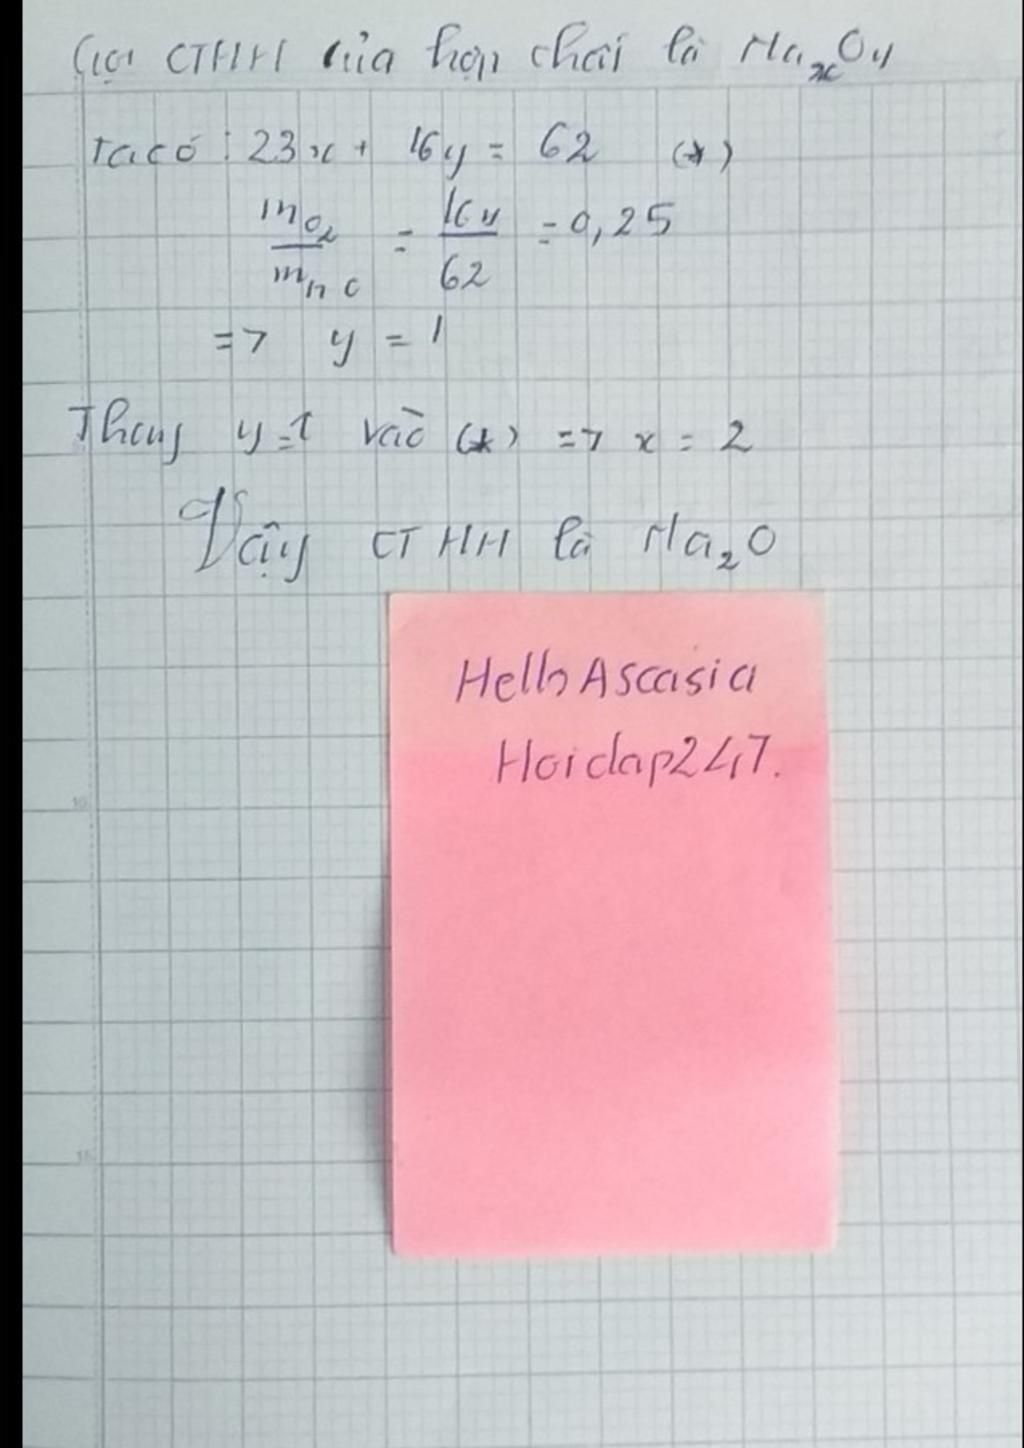 Gọi CTHH của hợp chất là NaxOy
Ta có : 23x + 16y = 62 (*)
mO2 / mhc = 16y / 62 = 0,25
=> y = 1
Thay y=1 vào (*) => x = 2
Vậy CTHH là Na2O
Hello Ascasia
Hoidap247.